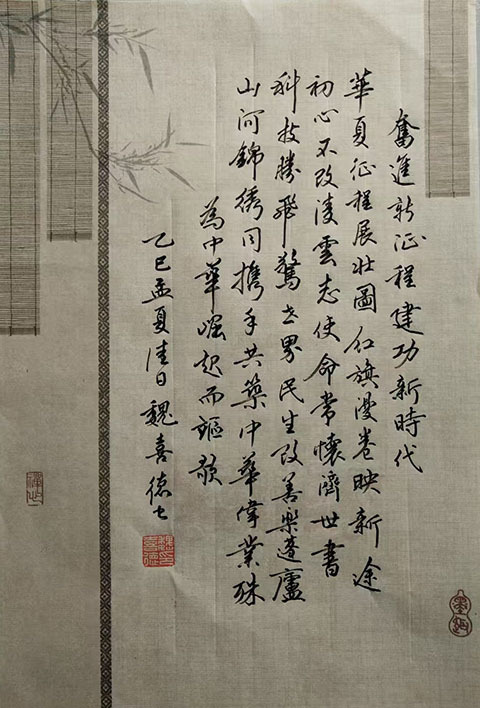 奮進新征程建功新時代
華夏征程展壯圖紅旗漫卷映新途
初心不改凌雲志使命常懷濟世書
科技騰飛驚世界民生改善樂蓬廬
山河錦綉同携手共築中華偉業殊
為中華崛起而謳歌
乙巳孟夏佳日魏喜德